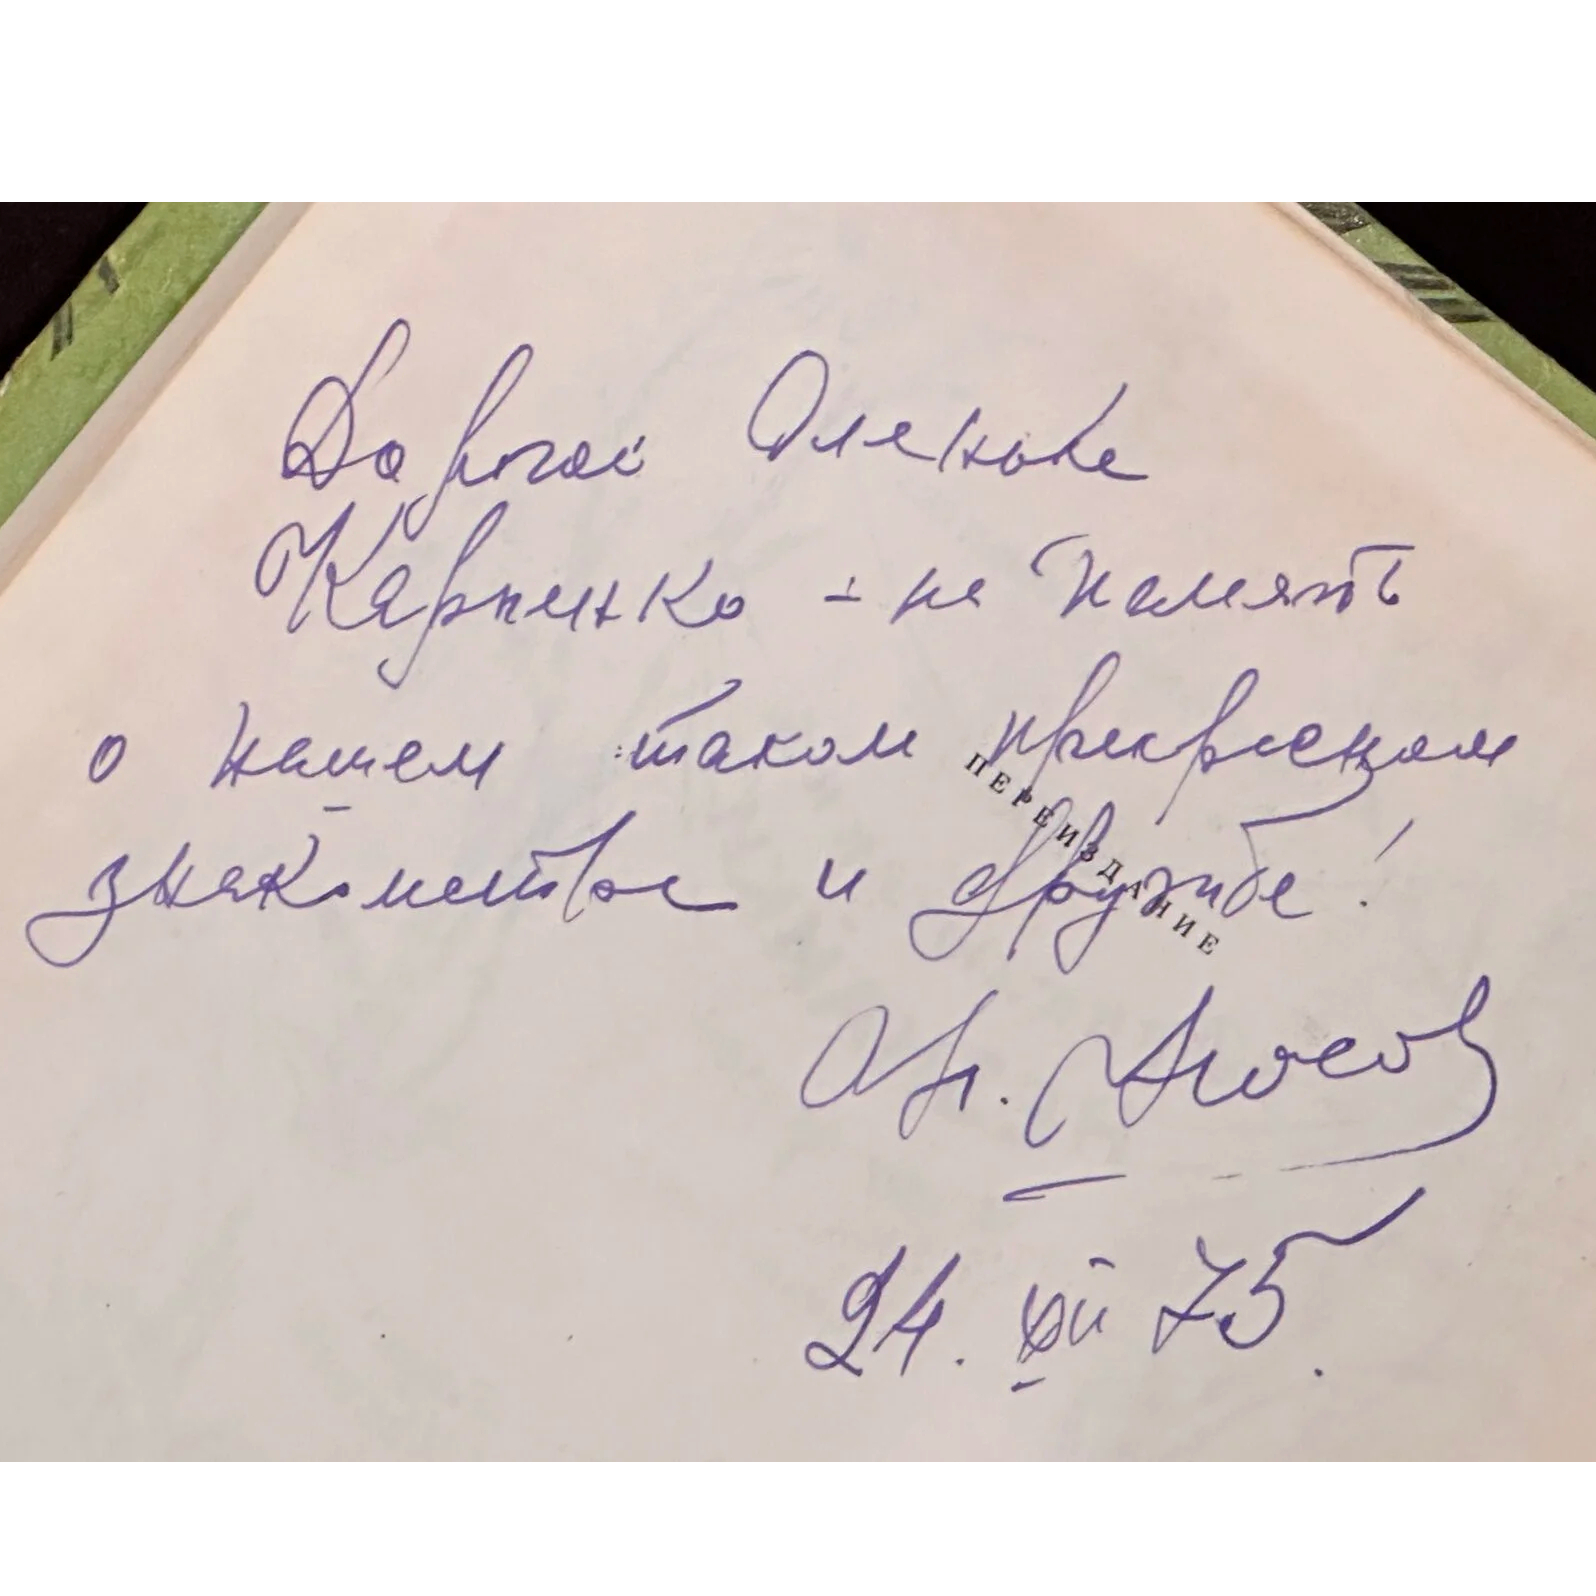 Дорогой Оленьке
Карпинко - на память
о нашем таком прекрасном
знакомстве и дружбе!
ПЕРЕИЗДАНИЕ
Носов
24. XII 75.